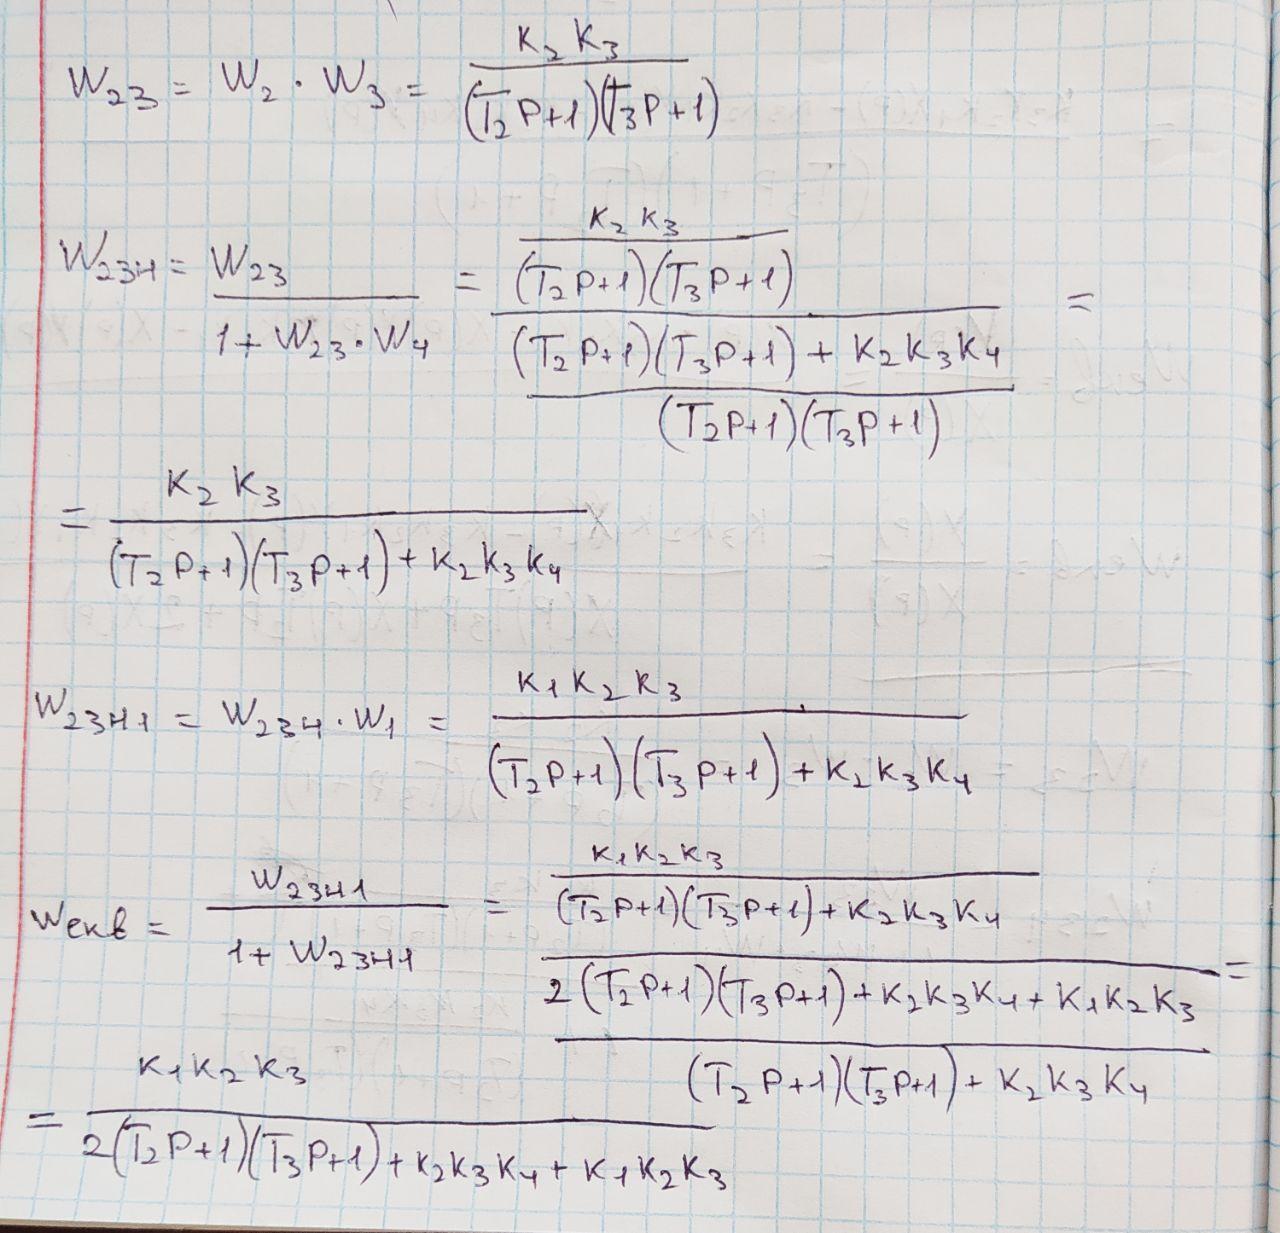 W₂₃ = W₂ · W₃ = K₂ K₃ / (T₂P+1)(T₃P+1)
W₂₃₄ = W₂₃ / (1 + W₂₃ · W₄) = (K₂ K₃ / (T₂P+1)(T₃P+1)) / (((T₂P+1)(T₃P+1) + K₂K₃K₄) / (T₂P+1)(T₃P+1)) =
= K₂ K₃ / ((T₂P+1)(T₃P+1) + K₂K₃K₄)
W₂₃₄₁ = W₂₃₄ · W₁ = K₁ K₂ K₃ / ((T₂P+1)(T₃P+1) + K₂K₃K₄)
Wекв = W₂₃₄₁ / (1 + W₂₃₄₁) = (K₁K₂K₃ / ((T₂P+1)(T₃P+1) + K₂K₃K₄)) / ((2(T₂P+1)(T₃P+1) + K₂K₃K₄ + K₁K₂K₃) / ((T₂P+1)(T₃P+1) + K₂K₃K₄)) =
= K₁K₂K₃ / (2(T₂P+1)(T₃P+1) + K₂K₃K₄ + K₁K₂K₃)